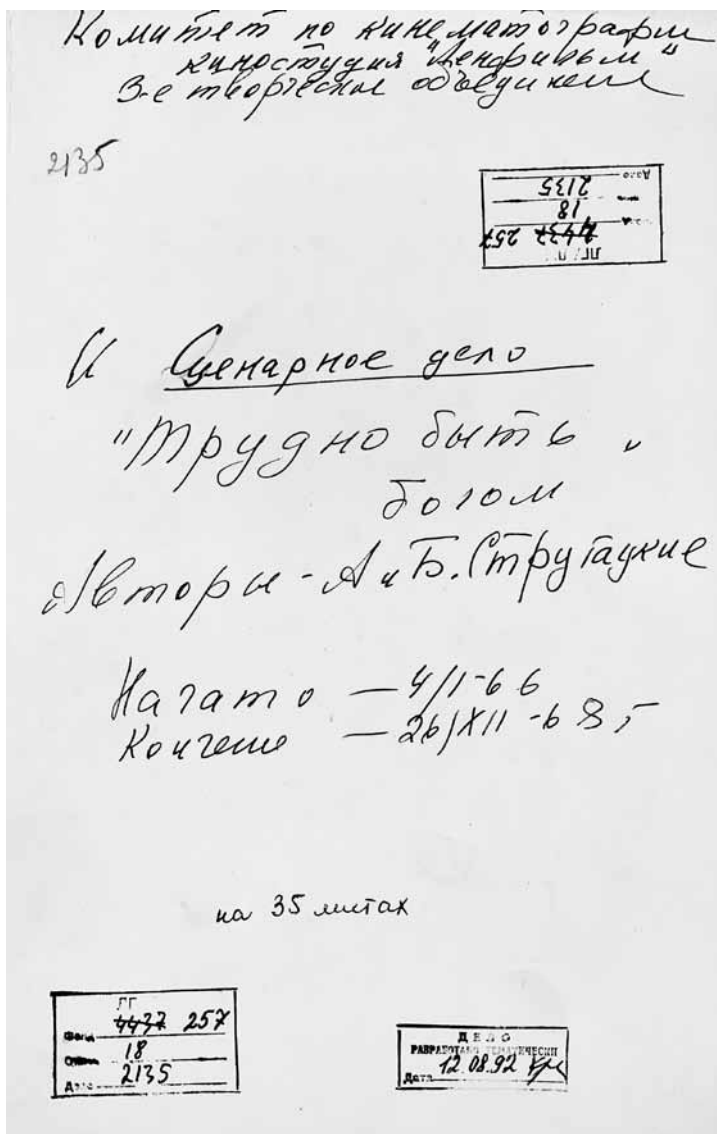 Комитет по кинематографии
киностудия "Ленфильм"
3-е творческое объединение
2135
Дело 2135
18
4437 257
К Сценарное дело
"Трудно быть
богом"
Авторы - А и Б. Стругацкие
Начато — 4/I-66
Кончено — 26/XII-68 г
на 35 листах
ЛГ
Фонд 4437 257
Опись 18
Дело 2135
ДЕЛО
РАЗРАБОТАНО ТЕМАТИЧЕСКИ
Дата 12.08.92